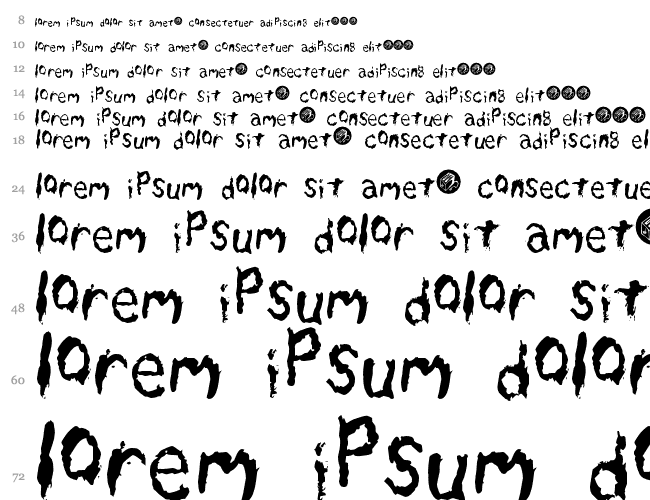 8 lorem iPsum dolor sit amet consectetuer adiPiscing elit
10 lorem iPsum dolor sit amet consectetuer adiPiscing elit
12 lorem iPsum dolor sit amet consectetuer adiPiscing elit
14 lorem iPsum dolor sit amet consectetuer adiPiscing elit
16 lorem iPsum dolor sit amet consectetuer adiPiscing elit
18 lorem iPsum dolor sit amet consectetuer adiPiscing el
24 lorem iPsum dolor sit amet consectetue
36 lorem iPsum dolor sit amet
48 lorem iPsum dolor sit
60 lorem iPsum dolor
72 lorem iPsum do